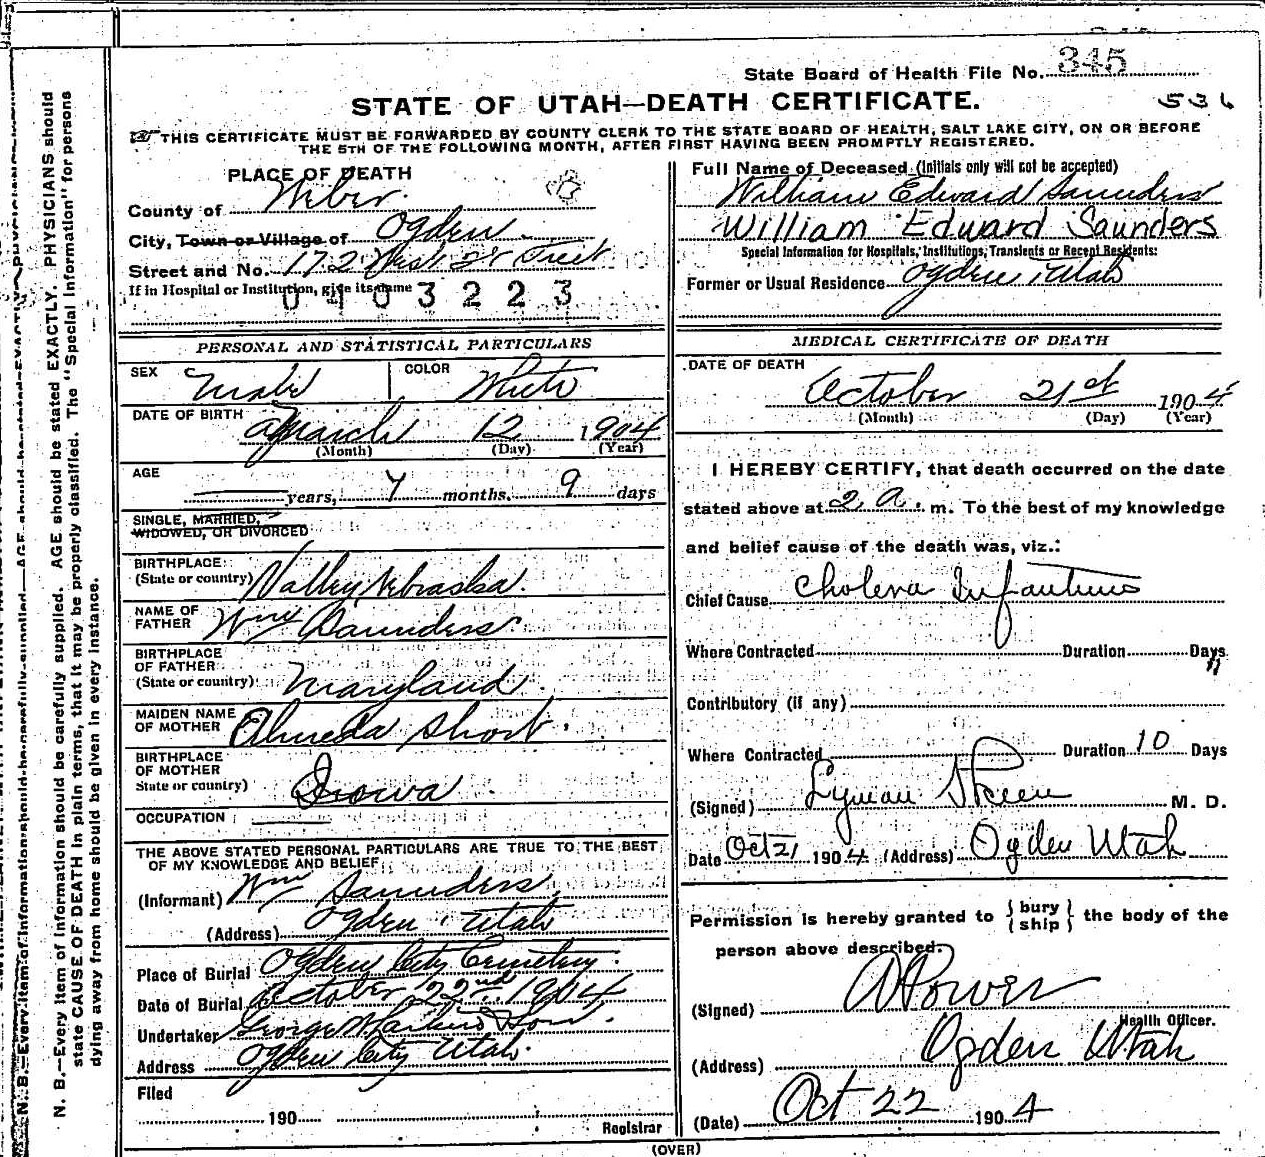 State Board of Health File No. 345
STATE OF UTAH—DEATH CERTIFICATE.
536
THIS CERTIFICATE MUST BE FORWARDED BY COUNTY CLERK TO THE STATE BOARD OF HEALTH, SALT LAKE CITY, ON OR BEFORE
THE 5TH OF THE FOLLOWING MONTH, AFTER FIRST HAVING BEEN PROMPTLY REGISTERED.
PLACE OF DEATH
County of Weber
City, Town or Village of Ogden
Street and No. 172 West 2 Street
If in Hospital or Institution, give its name
0403223
Full Name of Deceased (Initials only will not be accepted)
William Edward Saunders
William Edward Saunders
Special Information for Hospitals, Institutions, Transients or Recent Residents:
Former or Usual Residence Ogden Utah
PERSONAL AND STATISTICAL PARTICULARS
SEX Male COLOR White
DATE OF BIRTH March 12 1904
(Month) (Day) (Year)
AGE
years, 7 months, 9 days
SINGLE, MARRIED,
WIDOWED, OR DIVORCED
BIRTHPLACE:
(State or country) Valley Nebraska.
NAME OF
FATHER Wm Saunders
BIRTHPLACE
OF FATHER
(State or country) Maryland.
MAIDEN NAME
OF MOTHER Almeda Short.
BIRTHPLACE
OF MOTHER
State or country) Iowa
OCCUPATION
THE ABOVE STATED PERSONAL PARTICULARS ARE TRUE TO THE BEST
OF MY KNOWLEDGE AND BELIEF
(Informant) Wm Saunders
(Address) Ogden, Utah
Place of Burial Ogden City Cemetery.
Date of Burial October 22nd 1904
Undertaker George W Larkin & Son.
Address Ogden City Utah.
Filed
190
Registrar
MEDICAL CERTIFICATE OF DEATH
DATE OF DEATH
October 21st 1904
(Month) (Day) (Year)
I HEREBY CERTIFY, that death occurred on the date
stated above at 2 a. m. To the best of my knowledge
and belief cause of the death was, viz.:
Chief Cause Cholera Infantum
Where Contracted Duration Days
Contributory (if any)
Where Contracted Duration 10 Days
(Signed) Lyman Skeen M. D.
Date Oct 21 1904 (Address) Ogden Utah
Permission is hereby granted to { bury ship } the body of the
person above described.
(Signed) A Power
Health Officer.
(Address) Ogden Utah
(Date) Oct 22 1904
(OVER)
N. B.—Every item of information should be carefully supplied. AGE should be stated EXACTLY. PHYSICIANS should
state CAUSE OF DEATH in plain terms, that it may be properly classified. The "Special Information" for persons
dying away from home should be given in every instance.